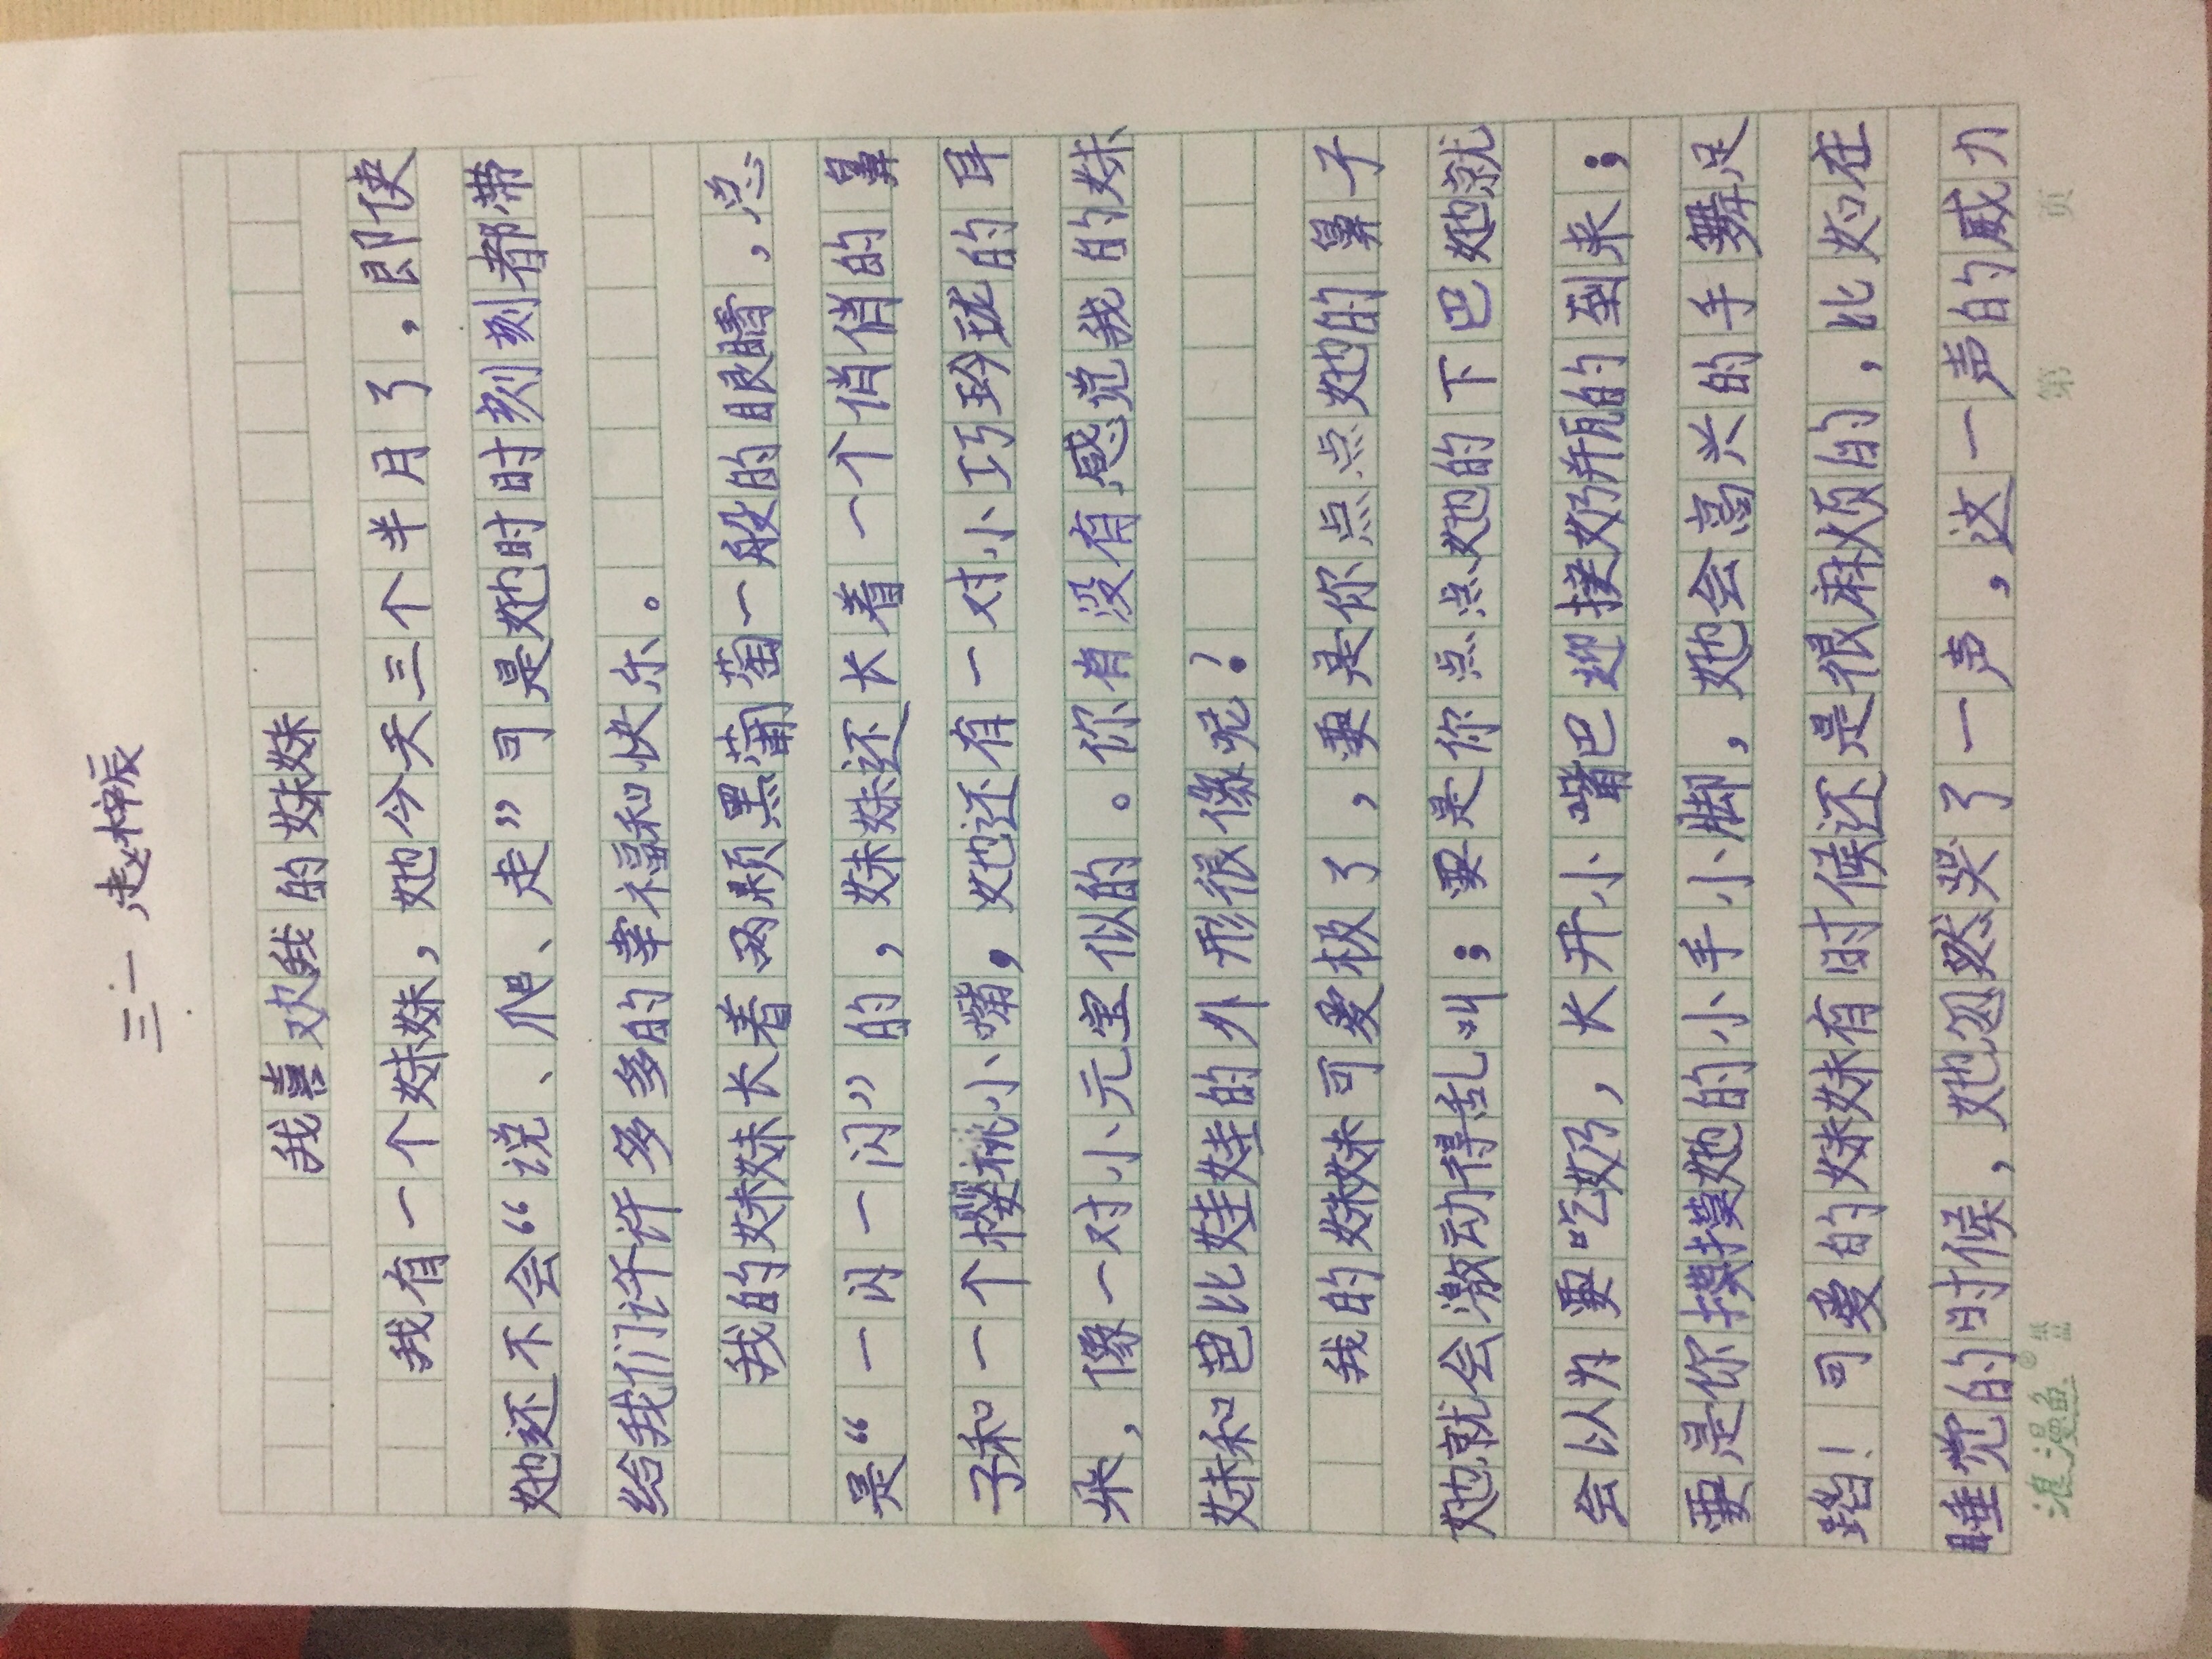 三一 赵梓辰
我喜欢我的妹妹
我有一个妹妹，她今天三个半月了，即使
她还不会“说、爬、走”可是她时时刻刻都带
给我们许许多多的幸福和快乐。
我的妹妹长着两颗黑葡萄一般的眼睛，总
是“一闪一闪”的，妹妹还长着一个俏俏的鼻
子和一个樱桃小嘴，她还有一对小巧玲珑的耳
朵，像一对小元宝似的。你有没有感觉我的妹
妹和芭比娃娃的外形很像呢？
我的妹妹可爱极了，要是你点点她的鼻子
她就会激动得乱叫；要是你点点她的下巴她就
会以为要吃奶，长开小嘴巴迎接奶瓶的到来；
要是你摸摸她的小手小脚，她会高兴的手舞足
蹈！可爱的妹妹有时候还是很麻烦的，比如在
睡觉的时候，她忽然哭了一声，这一声的威力
浪漫鱼®纸品
第 页